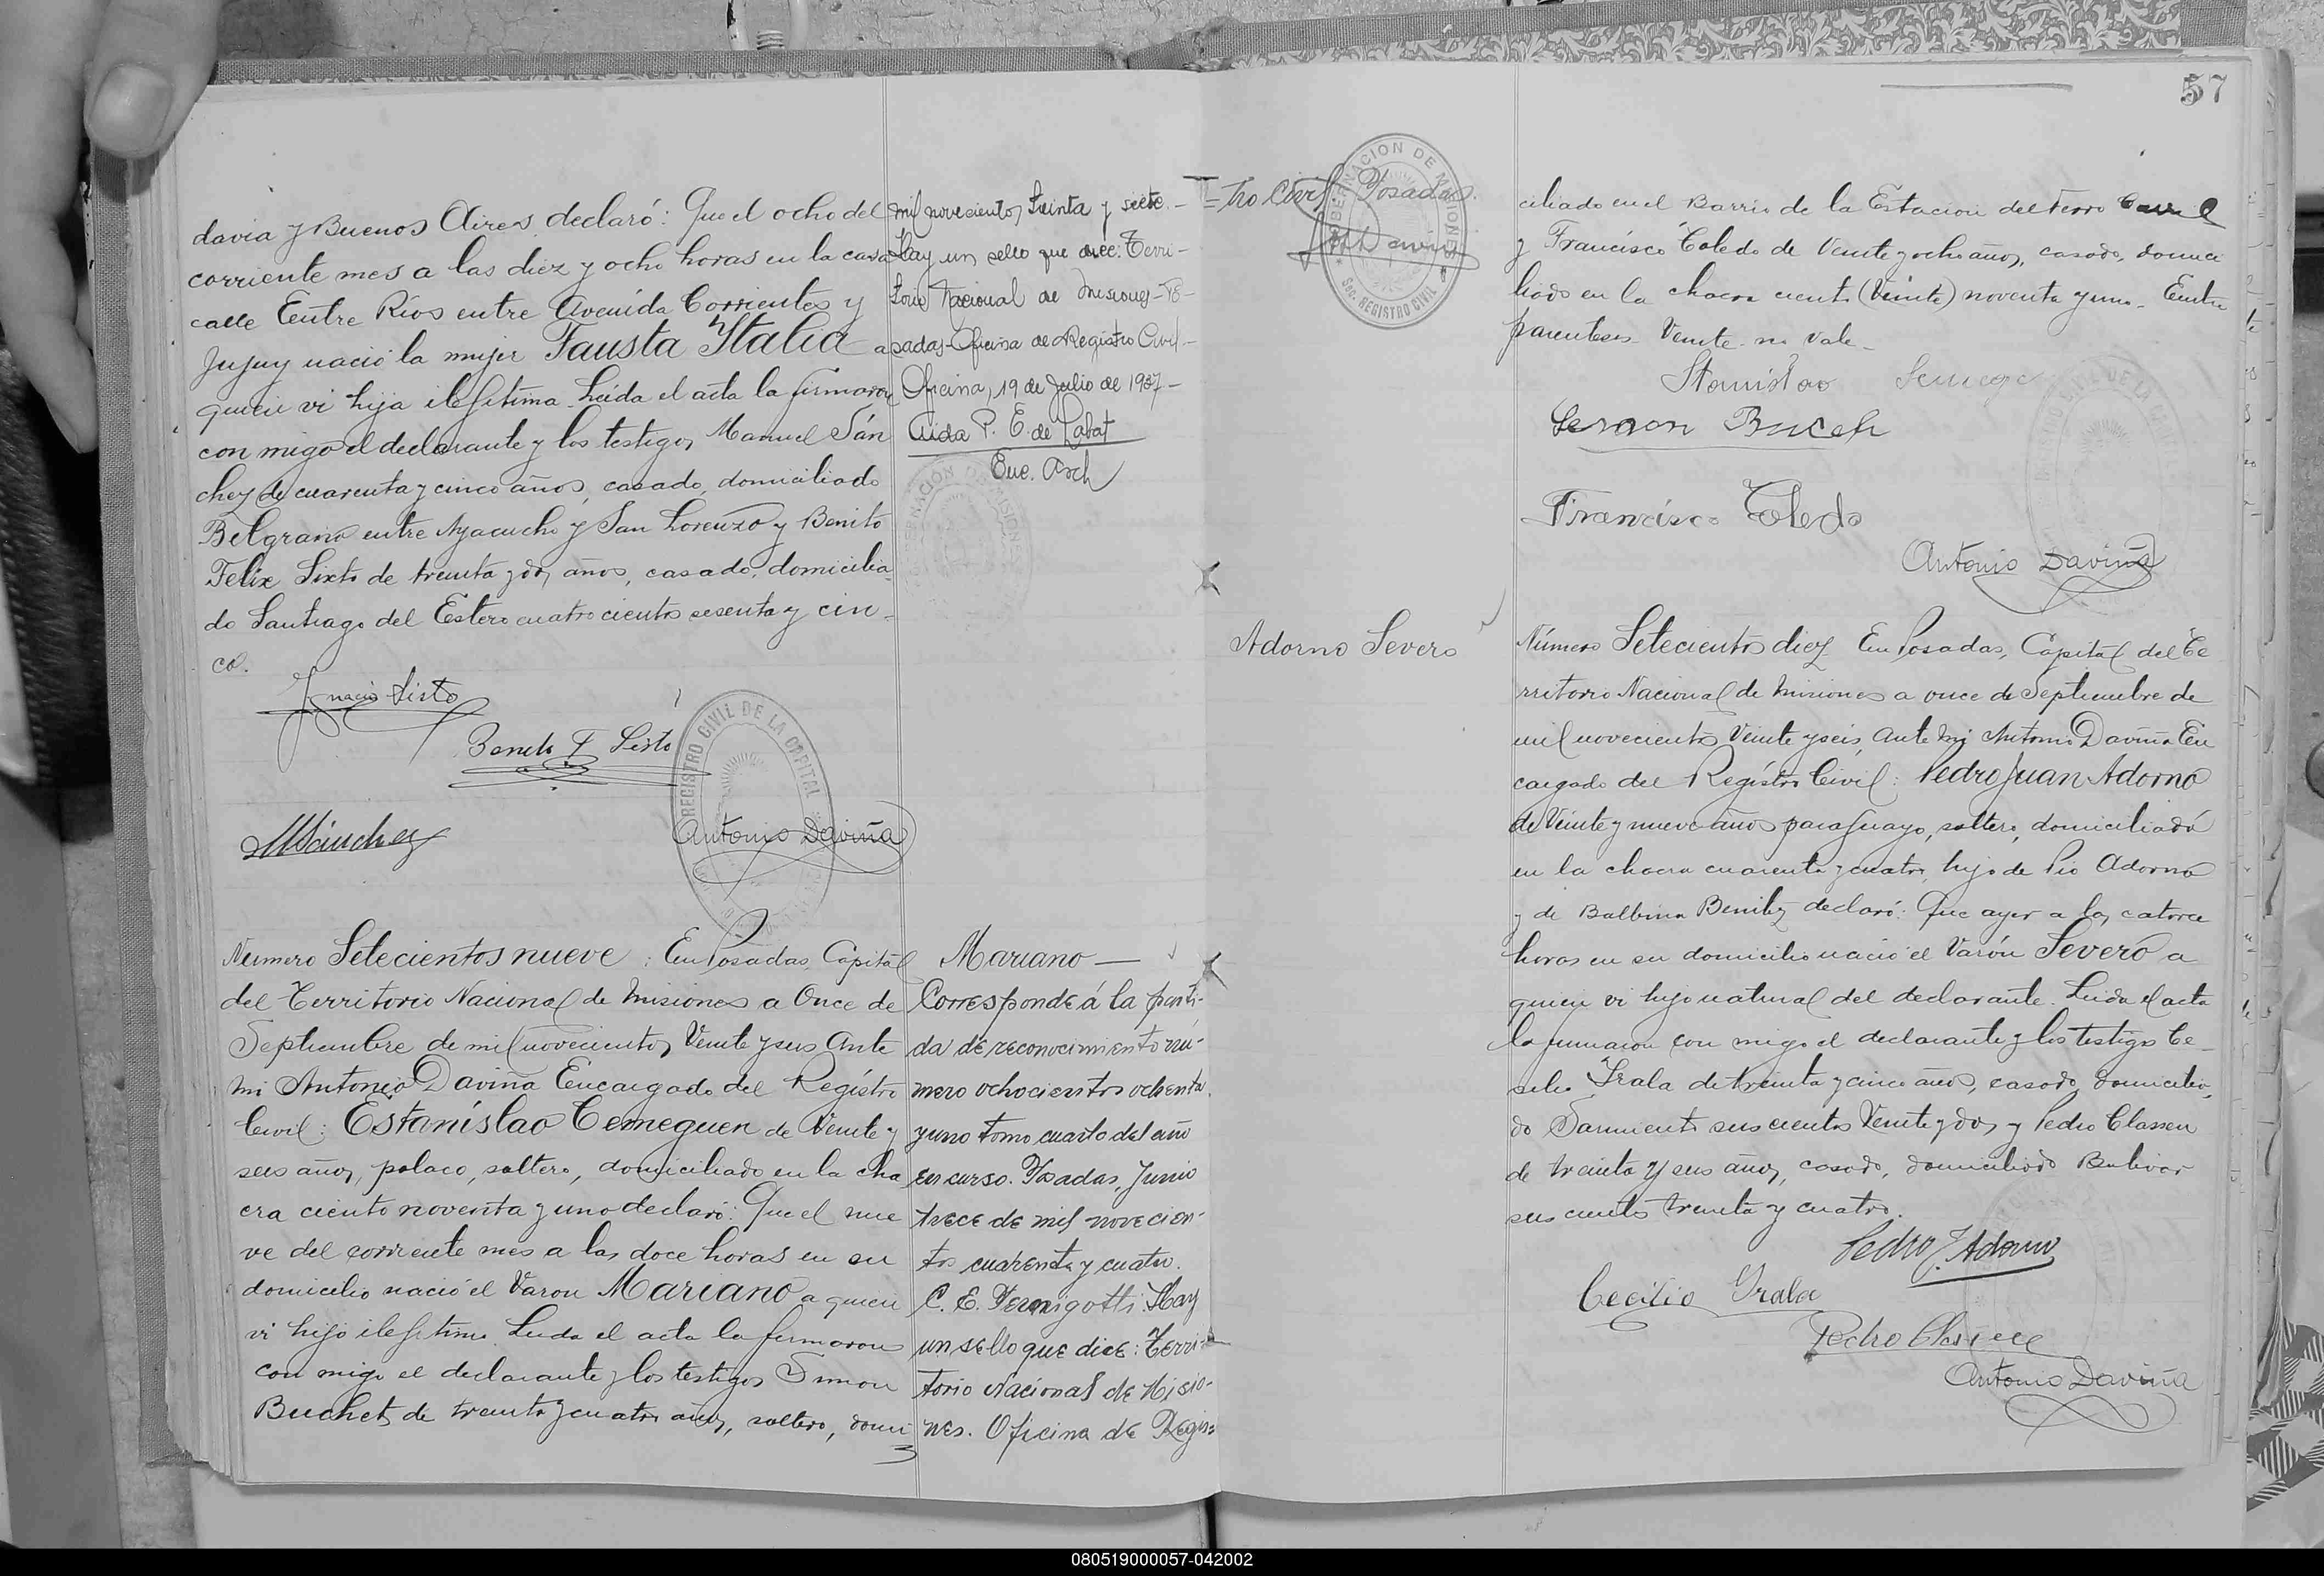 davia y Buenos Aires, declaró: Que el ocho del
corriente mes a las diez y ocho horas en la casa
calle Entre Ríos entre Avenida Corrientes y
Jujuy nació la mujer Fausta Italia a
quien vi hija ilegitima. Leida el acta la firmaron
con migo el declarante y los testigos Manuel Sán
chez de cuarenta y cinco años, casado, domiciliado
Belgrano entre Ayacucho y San Lorenzo y Benito
Felix Sixto de treinta y dos años, casado, domicilia
do Santiago del Estero cuatrocientos sesenta y cin-
co.
Ignacio Sisto
Benito F Sisto
MSánchez
REGISTRO CIVIL DE LA CAPITAL
Antonio Daviña
mil novecientos treinta y siete.-
Hay un sello que dice: Terri-
torio Nacional de Misiones-Po-
sadas-Oficina de Registro Civil-
Oficina, 19 de Julio de 1937-
Aida P. E. de Labat
Enc. Arch
GOBERNACIÓN DE MISIONES
Número Setecientos nueve: En Posadas, Capital
del Territorio Nacional de Misiones a Once de
Septiembre de mil novecientos Veinte y seis Ante
mi Antonio Daviña Encargado del Registro
Civil: Estanislao Temeguen de Veinte y
seis años, polaco, soltero, domiciliado en la cha
cra ciento noventa y uno declaró: Que el nue
ve del corriente mes a las doce horas en su
domicilio nació el Varon Mariano a quien
vi hijo ilegitimo. Leida el acta la firmaron
con migo el declarante y los testigos Simon
Buchet de treinta y cuatro años, soltero, domi
Mariano —
Corresponde á la parti-
da de reconocimiento nú-
mero ochocientos ochenta
y uno tomo cuarto del año
en curso. Posadas, Junio
trece de mil novecien-
tos cuarenta y cuatro.
C. E. Vernigotti. Hay
un sello que dice: Terri-
torio Nacional de Misio-
nes. Oficina de Regis=
57
=tro Civil Posadas.
GOBERNACION DE MISIONES
Sec. REGISTRO CIVIL
ciliado en el Barrio de la Estacion del Ferro Carril
y Francisco Toledo de Veinte y ocho años, casado, domici
liado en la chacra ciento (Veinte) noventa y uno. Entre
parentesis Veinte no vale-
Stanislao
Francisco Toledo
Antonio Daviña
Adorno Severo
Número Setecientos diez En Posadas, Capital del Te
rritorio Nacional de Misiones a once de Septiembre de
mil novecientos Veinte y seis, Ante Mi Antonio Daviña En
cargado del Registro Civil: Pedro Juan Adorno
de Veinte y nueve años paraguayo, soltero, domiciliado
en la chacra cuarenta y cuatro, hijo de Pio Adorno
y de Balbina Benitez declaró: Que ayer a las catorce
horas en su domicilio nació el Varón Severo a
quien vi hijo natural del declarante. Leida el acta
la firmaron con migo el declarante y los testigos Ce-
cilio Irala de treinta y cinco años, casado, domicilia
do Sarmiento seiscientos Veinte y dos y Pedro Classen
de treinta y seis años, casado, domiciliado Bolivar
seiscientos treinta y cuatro.
Pedro J. Adorno
Cecilio Irala
Pedro Classen
Antonio Daviña
080519000057-042002